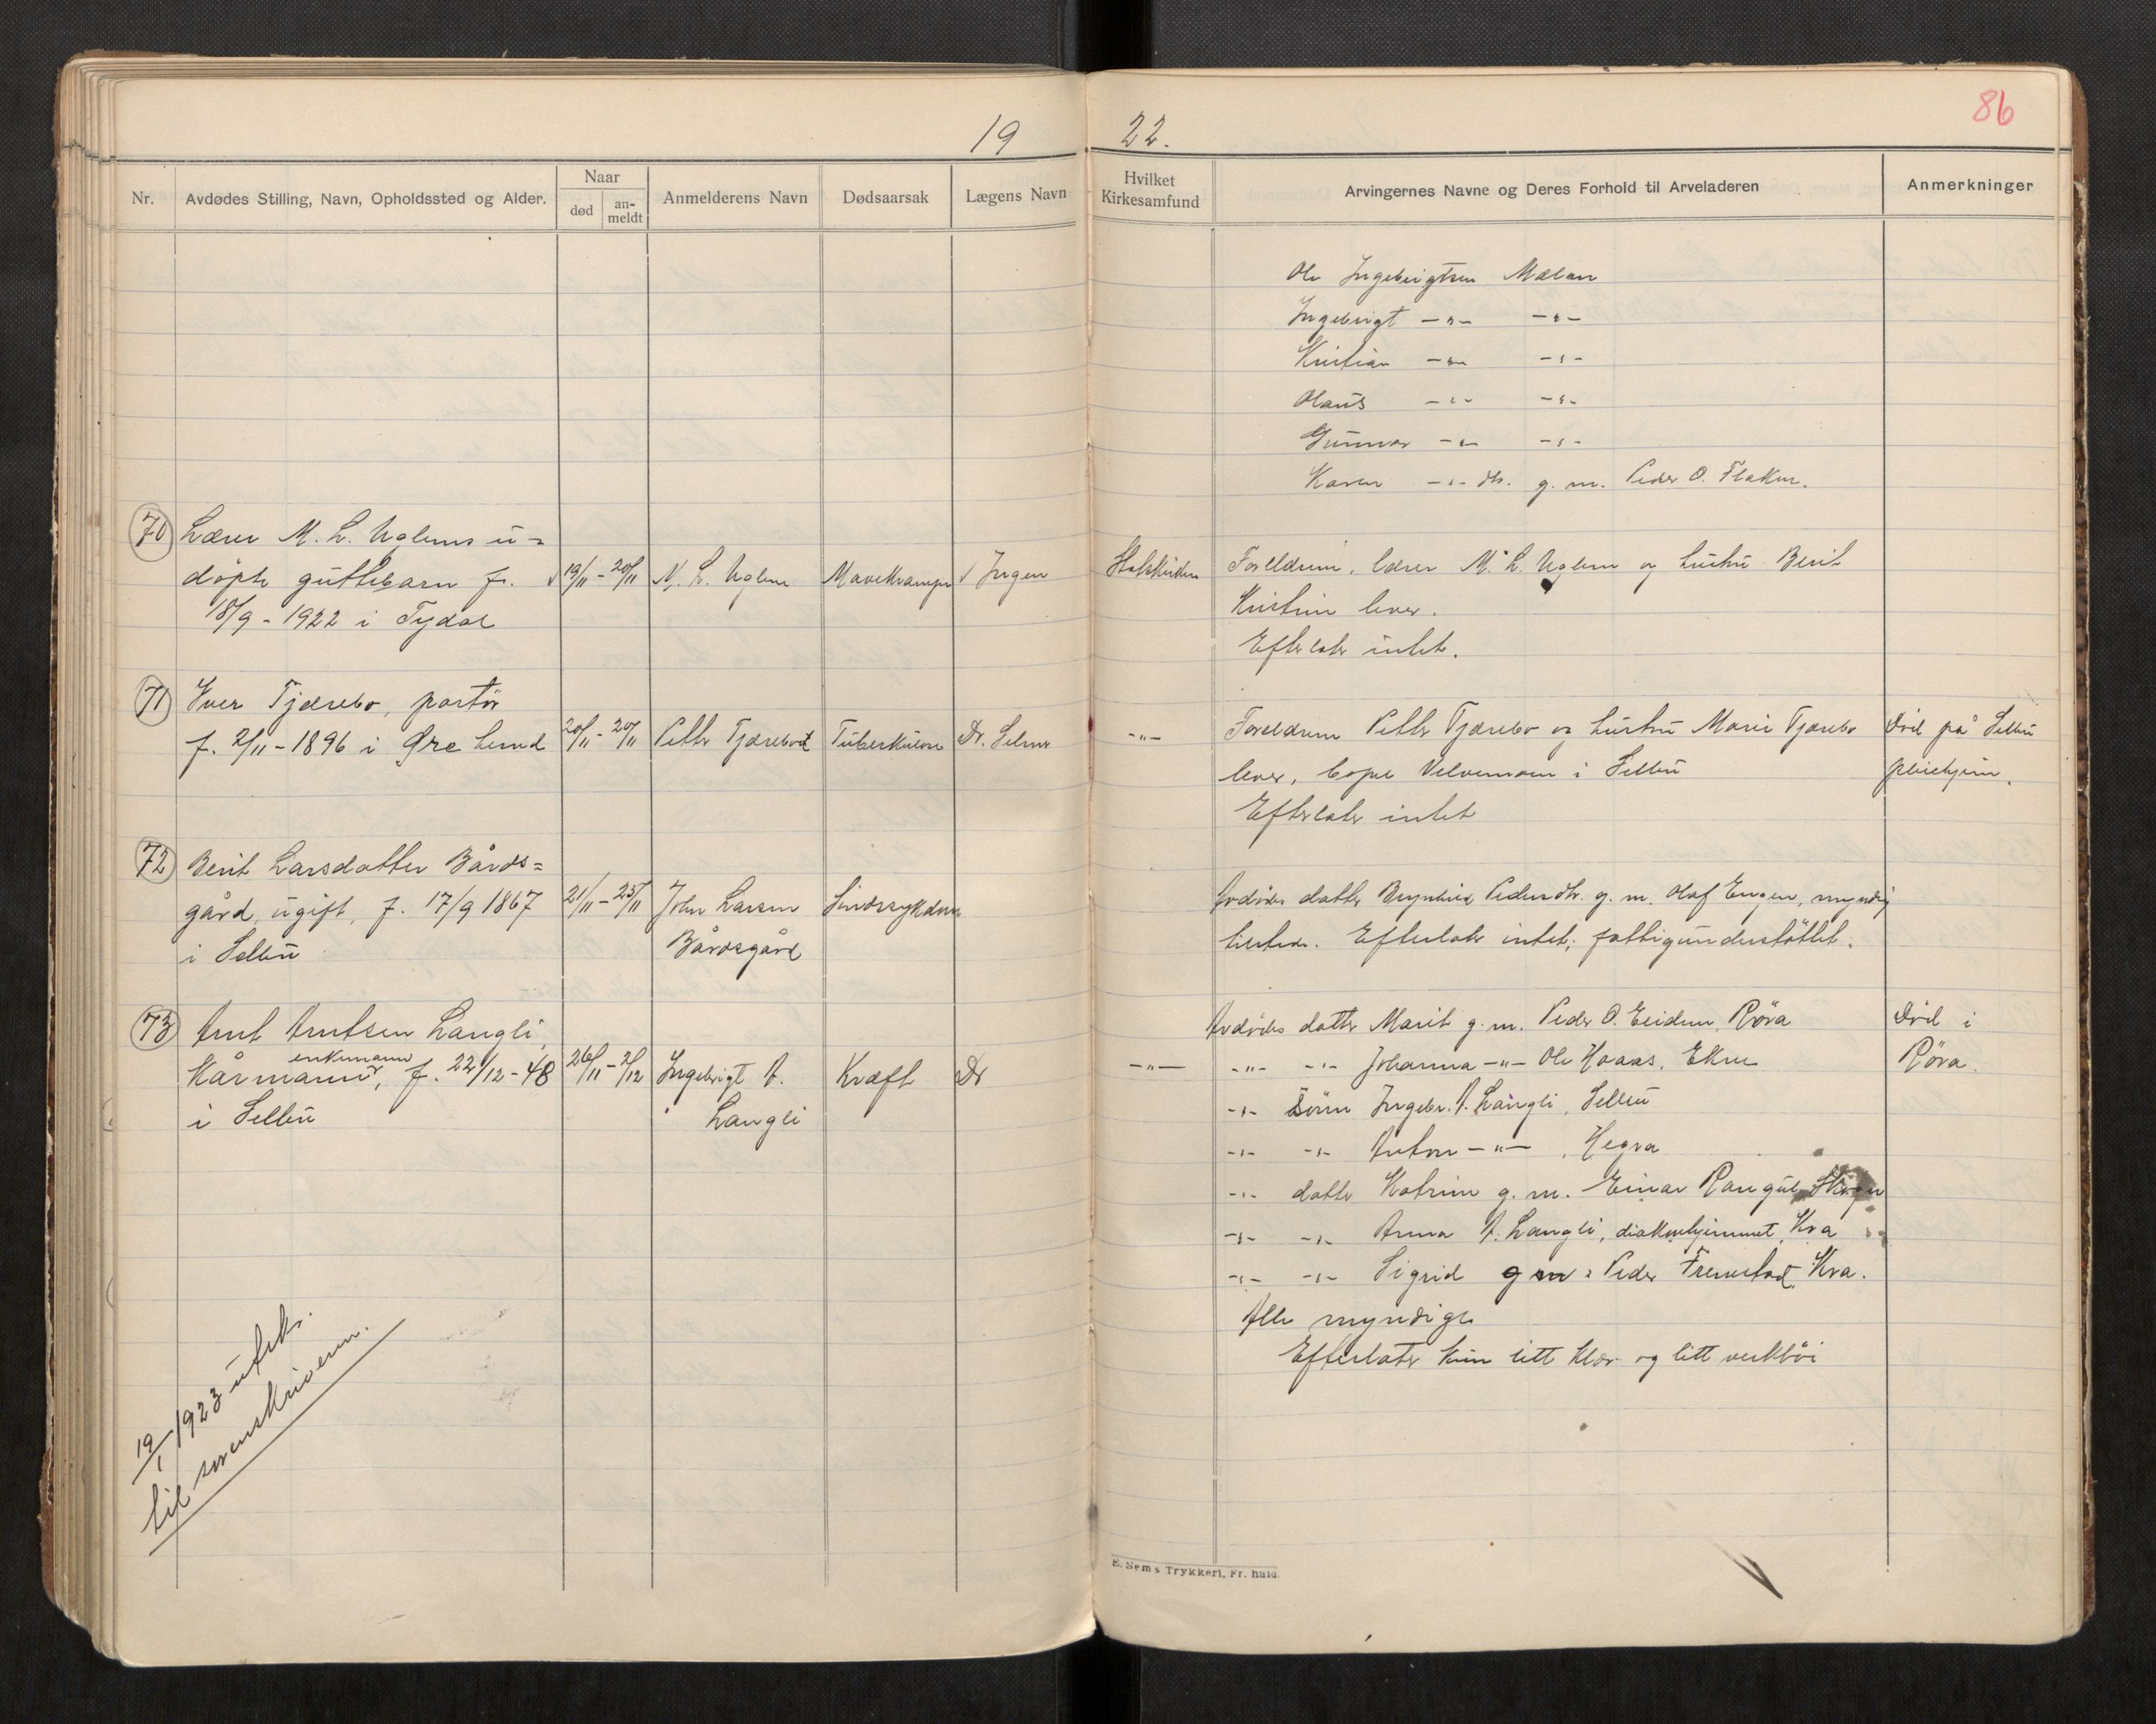 19 22.
86
Nr.
Avdødes Stilling, Navn, Opholdssted og Alder.
Naar
død
an-
meldt
Anmelderens Navn
Dødsaarsak
Lægens Navn
Hvilket
Kirkesamfund
Arvingernes Navne og Deres Forhold til Arveladeren
Anmerkninger
Ole Ingebrigtsen Mælan
Ingebrigt -"- -"-
Kristian -"- -"-
Olaus -"- -"-
Gunnar -"- -"-
Karen -"- dtr. g. m. Peder O. Flakne.
70 Lærer M. L. Uglems u=
døpte guttebarn f. 19/11 - 20/11 M. L. Uglem Mavekrampe Ingen
18/9 - 1922 i Tydal
Statskirken Foreldrene, lærer M. L. Uglem og hustru Berit
Kristine lever.
Efterlater intet.
71 Iver Tjærebo, portør
f. 2/11 - 1896 i Øre 20/11 - 20/11 Petter Tjærebo Tuberkulose Dr.
-"- Foreldrene Petter Tjærebo og hustru Marie Tjærebo
lever, i Selbu
Efterlater intet
Død på Selbu
pleiehjem.
72 Berit Larsdatter Bårds=
gård, ugift, f. 17/9 1867 21/11 - 25/11 John Larsen Sindssykdom
i Selbu Bårdsgård
Avdødes datter Brynhild Pedersdtr. g. m. Olaf Engen, myndig
tilstede. Efterlater intet; fattigunderstøttet.
73 Arnt Arntsen Langli,
enkemann
Kårmann, f. 22/12 - 48 26/11 - 2/12 Ingebrigt A. Kræft Dr
i Selbu Langli
Avdødes datter Marit g. m. Peder O. Eidem, Røra
-"- -"- -"- Johanna -"- Ole Haaas, Ekne
-"- sønn Ingebr. A. Langli, Selbu
-"- -"- Anton -"- , Hegra
-"- datter Katrine g. m. Einar Skogn
-"- -"- Anna A. Langli, diakonhjemmet, Kra
-"- -"- Sigrid g m : Peder Fremstad, Kra.
Alle myndige
Efterlater kun litt klær og litt verktøi
Død i
Røra.
19/1 1923 utskr.
til sorenskriveren.
E. Sem's Trykkeri, Fr. hald